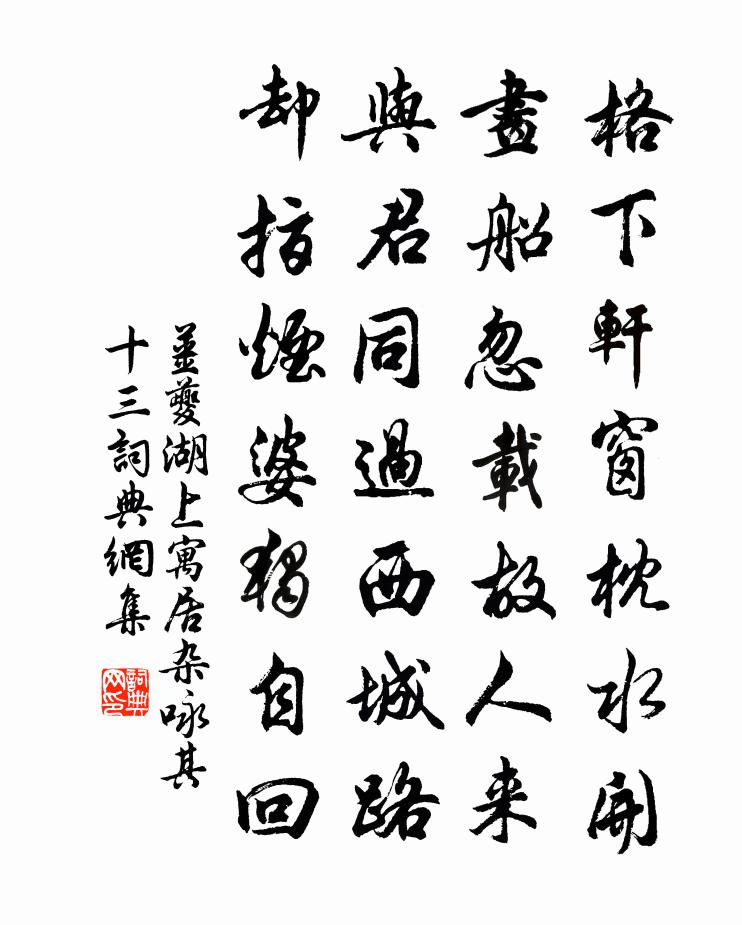 格下軒窗枕水開
畫船忽載故人来
與君同過西城路
却指煙婆獨自回
薑夔湖上寓居杂咏其
十三詞典網集
詞典
网印